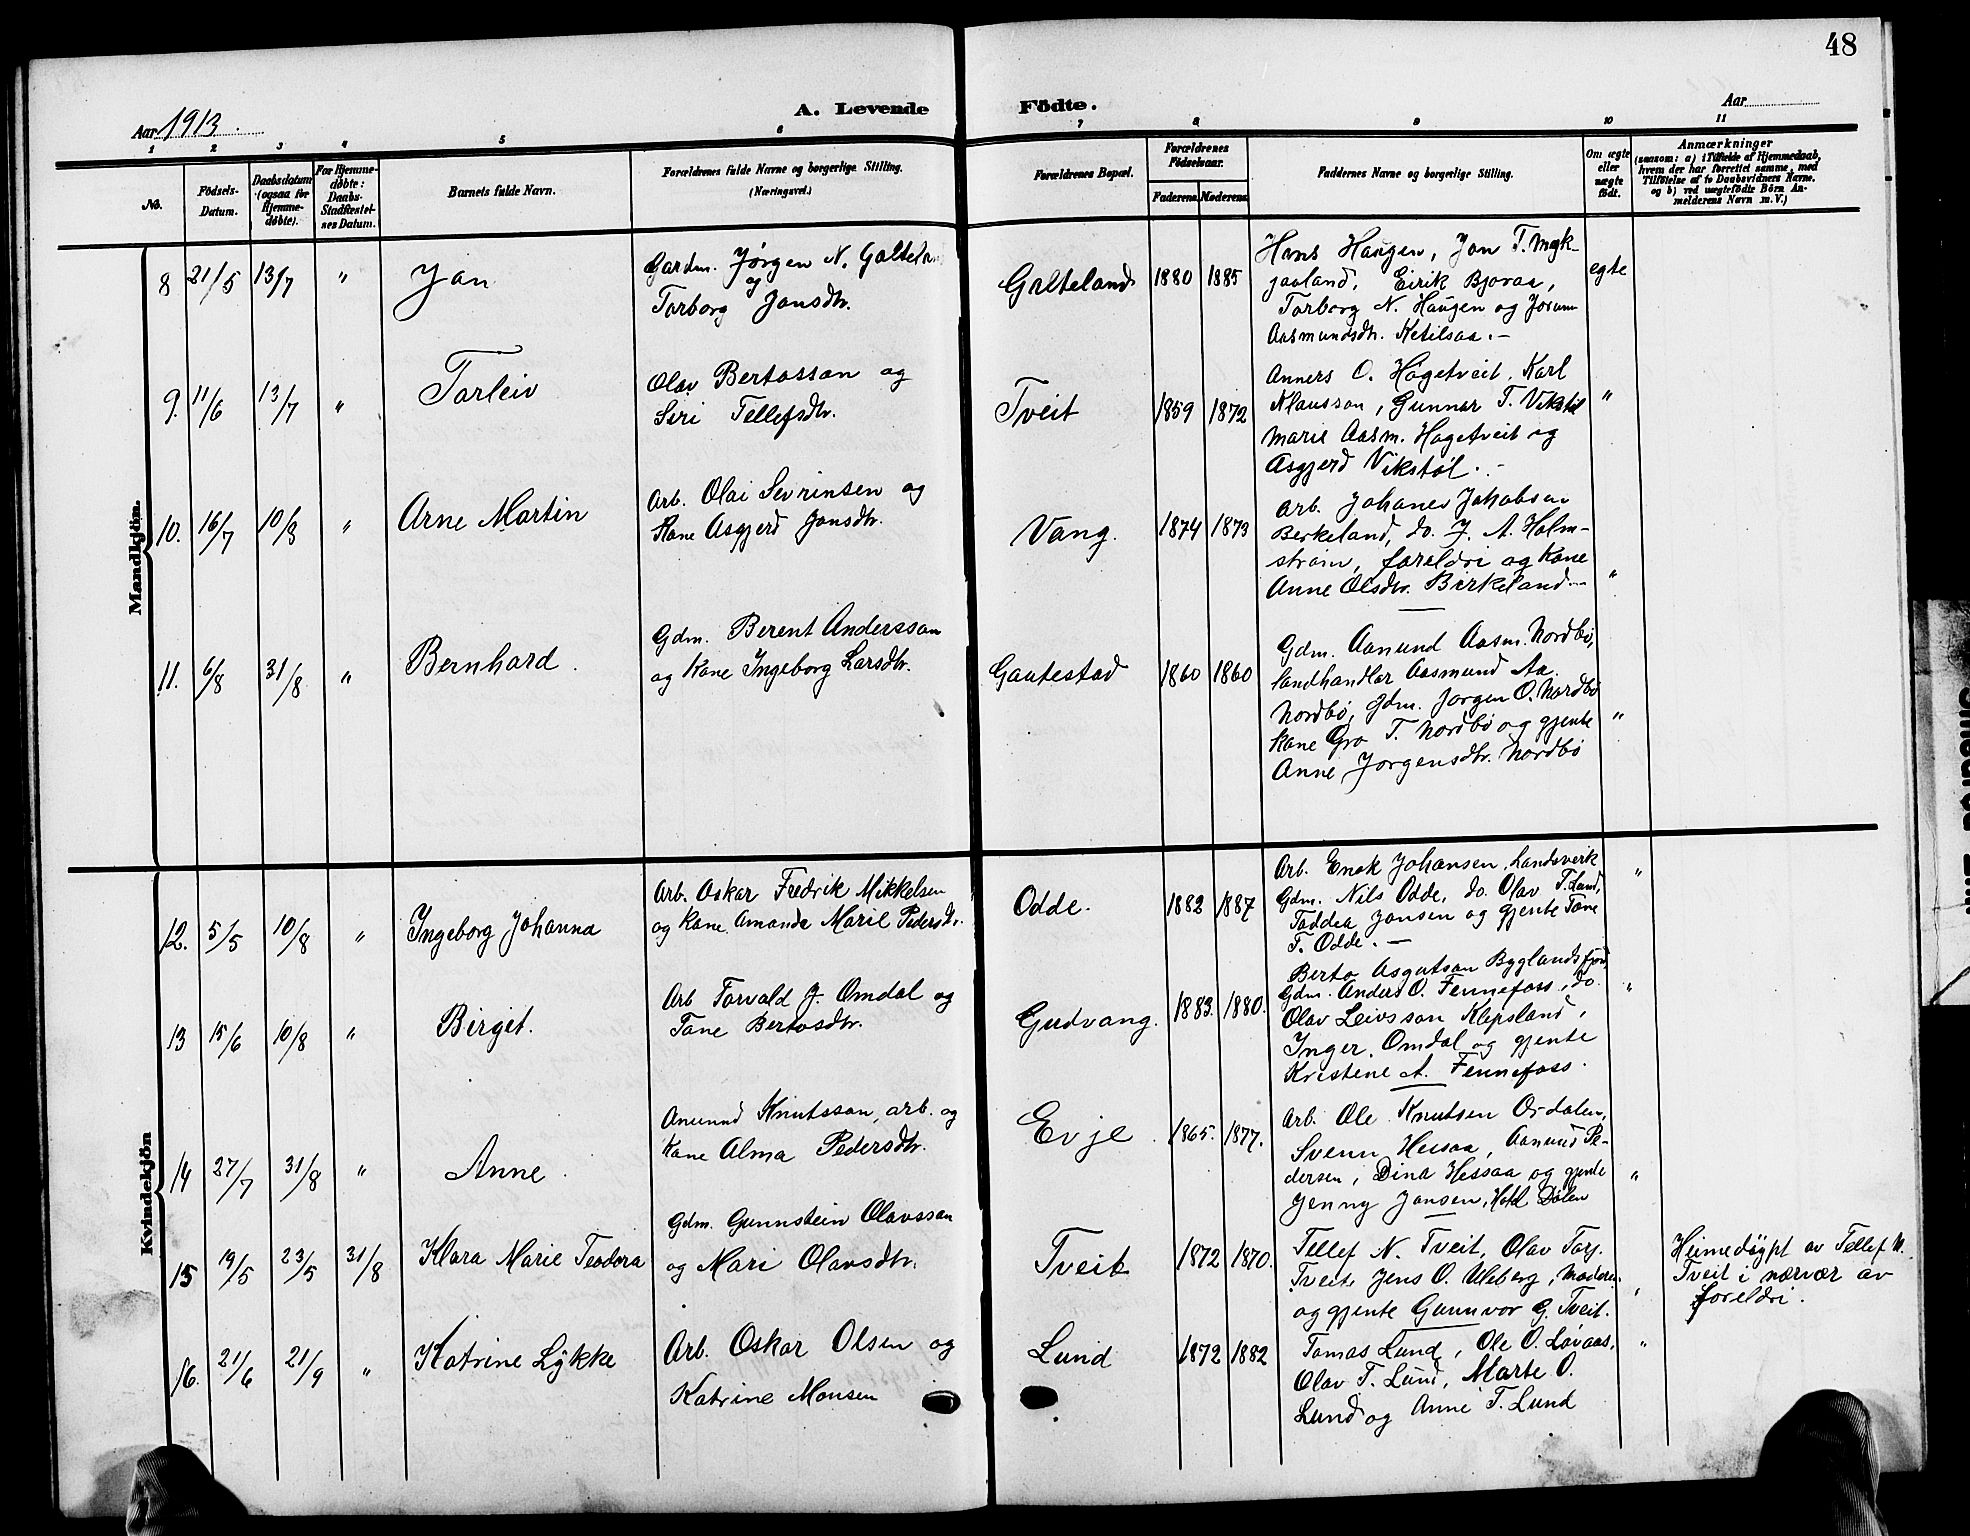 48
Aar 1913.
A. Levende Födte.
Aar
1 2 3 4 5 6 7 8 9 10 11
No.
Födsels-Datum.
Daabsdatum (ogsaa for Hjemmedøbte).
For Hjemmedøbte: Daabs-Stadfæstelses Datum.
Barnets fulde Navn.
Forældrenes fulde Navne og borgerlige Stilling. (Næringsvei.)
Forældrenes Bopæl.
Forældrenes Fødselsaar.
Faderens. Moderens.
Faddernes Navne og borgerlige Stilling.
Om ægte eller uægte født.
Anmærkninger
(saasom: a) i Tilfælde af Hjemmedaab, hvem der har forrettet samme, med Tilføielse af to Daabsvidners Navne, og b) ved uægtefødte Børn Anmelderens Navn m. V.)
Mandkjön.
8 21/5 13/7 " Jan
Gardm. Jørgen N. Galteland
og
Torborg Jonsdtr.
Galteland 1880 1885
Hans Haugen, Jon T.
Eirik Bjoraa,
Torborg N. Haugen og Jorunn
Aasmundsdtr. Ketilsaa.—
egte
9. 11/6 13/7 " Torleiv
Olav Bertosson og
Siri Tellefsdtr.
Tveit 1859 1872
Anners O. Høgetveit, Karl
Klausson, Gunnar T. Vikstøl
Marie Aasm. Høgetveit og
Asgjerd Vikstøl.—
"
10. 16/7 10/8 " Arne Martin
Arb. Olai Sevrinsen og
Kone Asgjerd Jonsdtr.
Vang. 1874 1873
Arb. Johanes Jakobsen
Berkeland, do. J. A. Holm-
strøm, foreldri og Kone
Anne Olsdtr. Birkeland.—
"
11. 6/8 31/8 " Bernhard.
Gdm. Berent Andersson
og Kone Ingeborg Larsdtr.
Gautestad 1860 1860
Gdm. Aanund Aasm. Nordbø,
landhandlar Aasmund Aa.
Nordbø, Gdm. Jorgen O. Nordbø
Kone Gro T. Nordbø og gjente
Anne Jorgensdtr. Nordbø
"
Kvindekjön
12. 5/5 10/8 " Ingeborg Johanna
Arb. Oskar Fredrik Mikkelsen
og Kone Amanda Marie Pedersdtr.
Odde. 1882 1887
Arb. Enok Johansen Landsverk
Gdm. Nils Odde, do. Olav T. Land,
Taddea Jansen og gjente Tone
T. Odde.—
"
13 15/6 10/8 " Birgit.
Arb Torvald J. Omdal og
Tone Bertosdtr.
Gudvang. 1883. 1880.
Berto Asgutson Byglandsfjord,
Gdm. Anders O. Fennefoss, do.
Olav Leivsson Klepsland,
Inger Omdal og gjente
Kristene A. Fennefoss.
"
14 27/7 31/8 " Anne.
Anunnd Knutsson, arb. og
Kone Alma Pedersdtr.
Evje. 1865. 1877.
Arb. Ole Knutsen Ordalen,
Svenn Hessaa, Aanund Pe-
dersen, Dina Hessaa og gjente
Jenny Jansen, Hotel Dølen
"
15 19/5 23/5 31/8 Klara Marie Teodora
Gdm. Gunnstein Olavsson
og Mari Olavsdtr.
Tveit 1872 1870.
Tellef N. Tveit, Olav Torj.
Tveit, Jens O. Uleberg, moderen
og gjente Gunnvor G. Tveit.
"
Heimedøypt av Tellef N.
Tveit i nærvær av
foreldri.
16. 21/6 21/9 " Katrine Lykke
Arb. Oskar Olsen og
Katrine Monsen
Lund 1872 1882
Tomas Lund, Ole O. Løvaas,
Olav T. Lund, Marte O.
Lund og Anne T. Lund
"